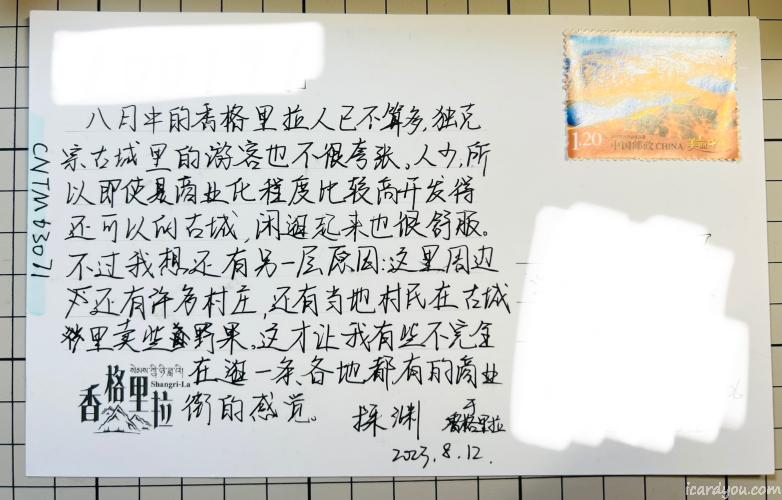 八月中的香格里拉人已不算多,独克
宗古城里的游客也不很夸张。人少,所
以即使是商业化程度比较高开发得
还可以的古城,闲逛起来也很舒服。
不过我想还有另一层原因:这里周边
还有许多村庄,还有当地村民在古城
里卖些野果。这才让我有些不完全
在逛一条各地都有的商业
街的感觉。
探渊
于
香格里拉
2023.8.12.
CNTM43071
1.20
中国邮政 CHINA
美丽中国
Shangri-La
香格里拉
icardyou.com